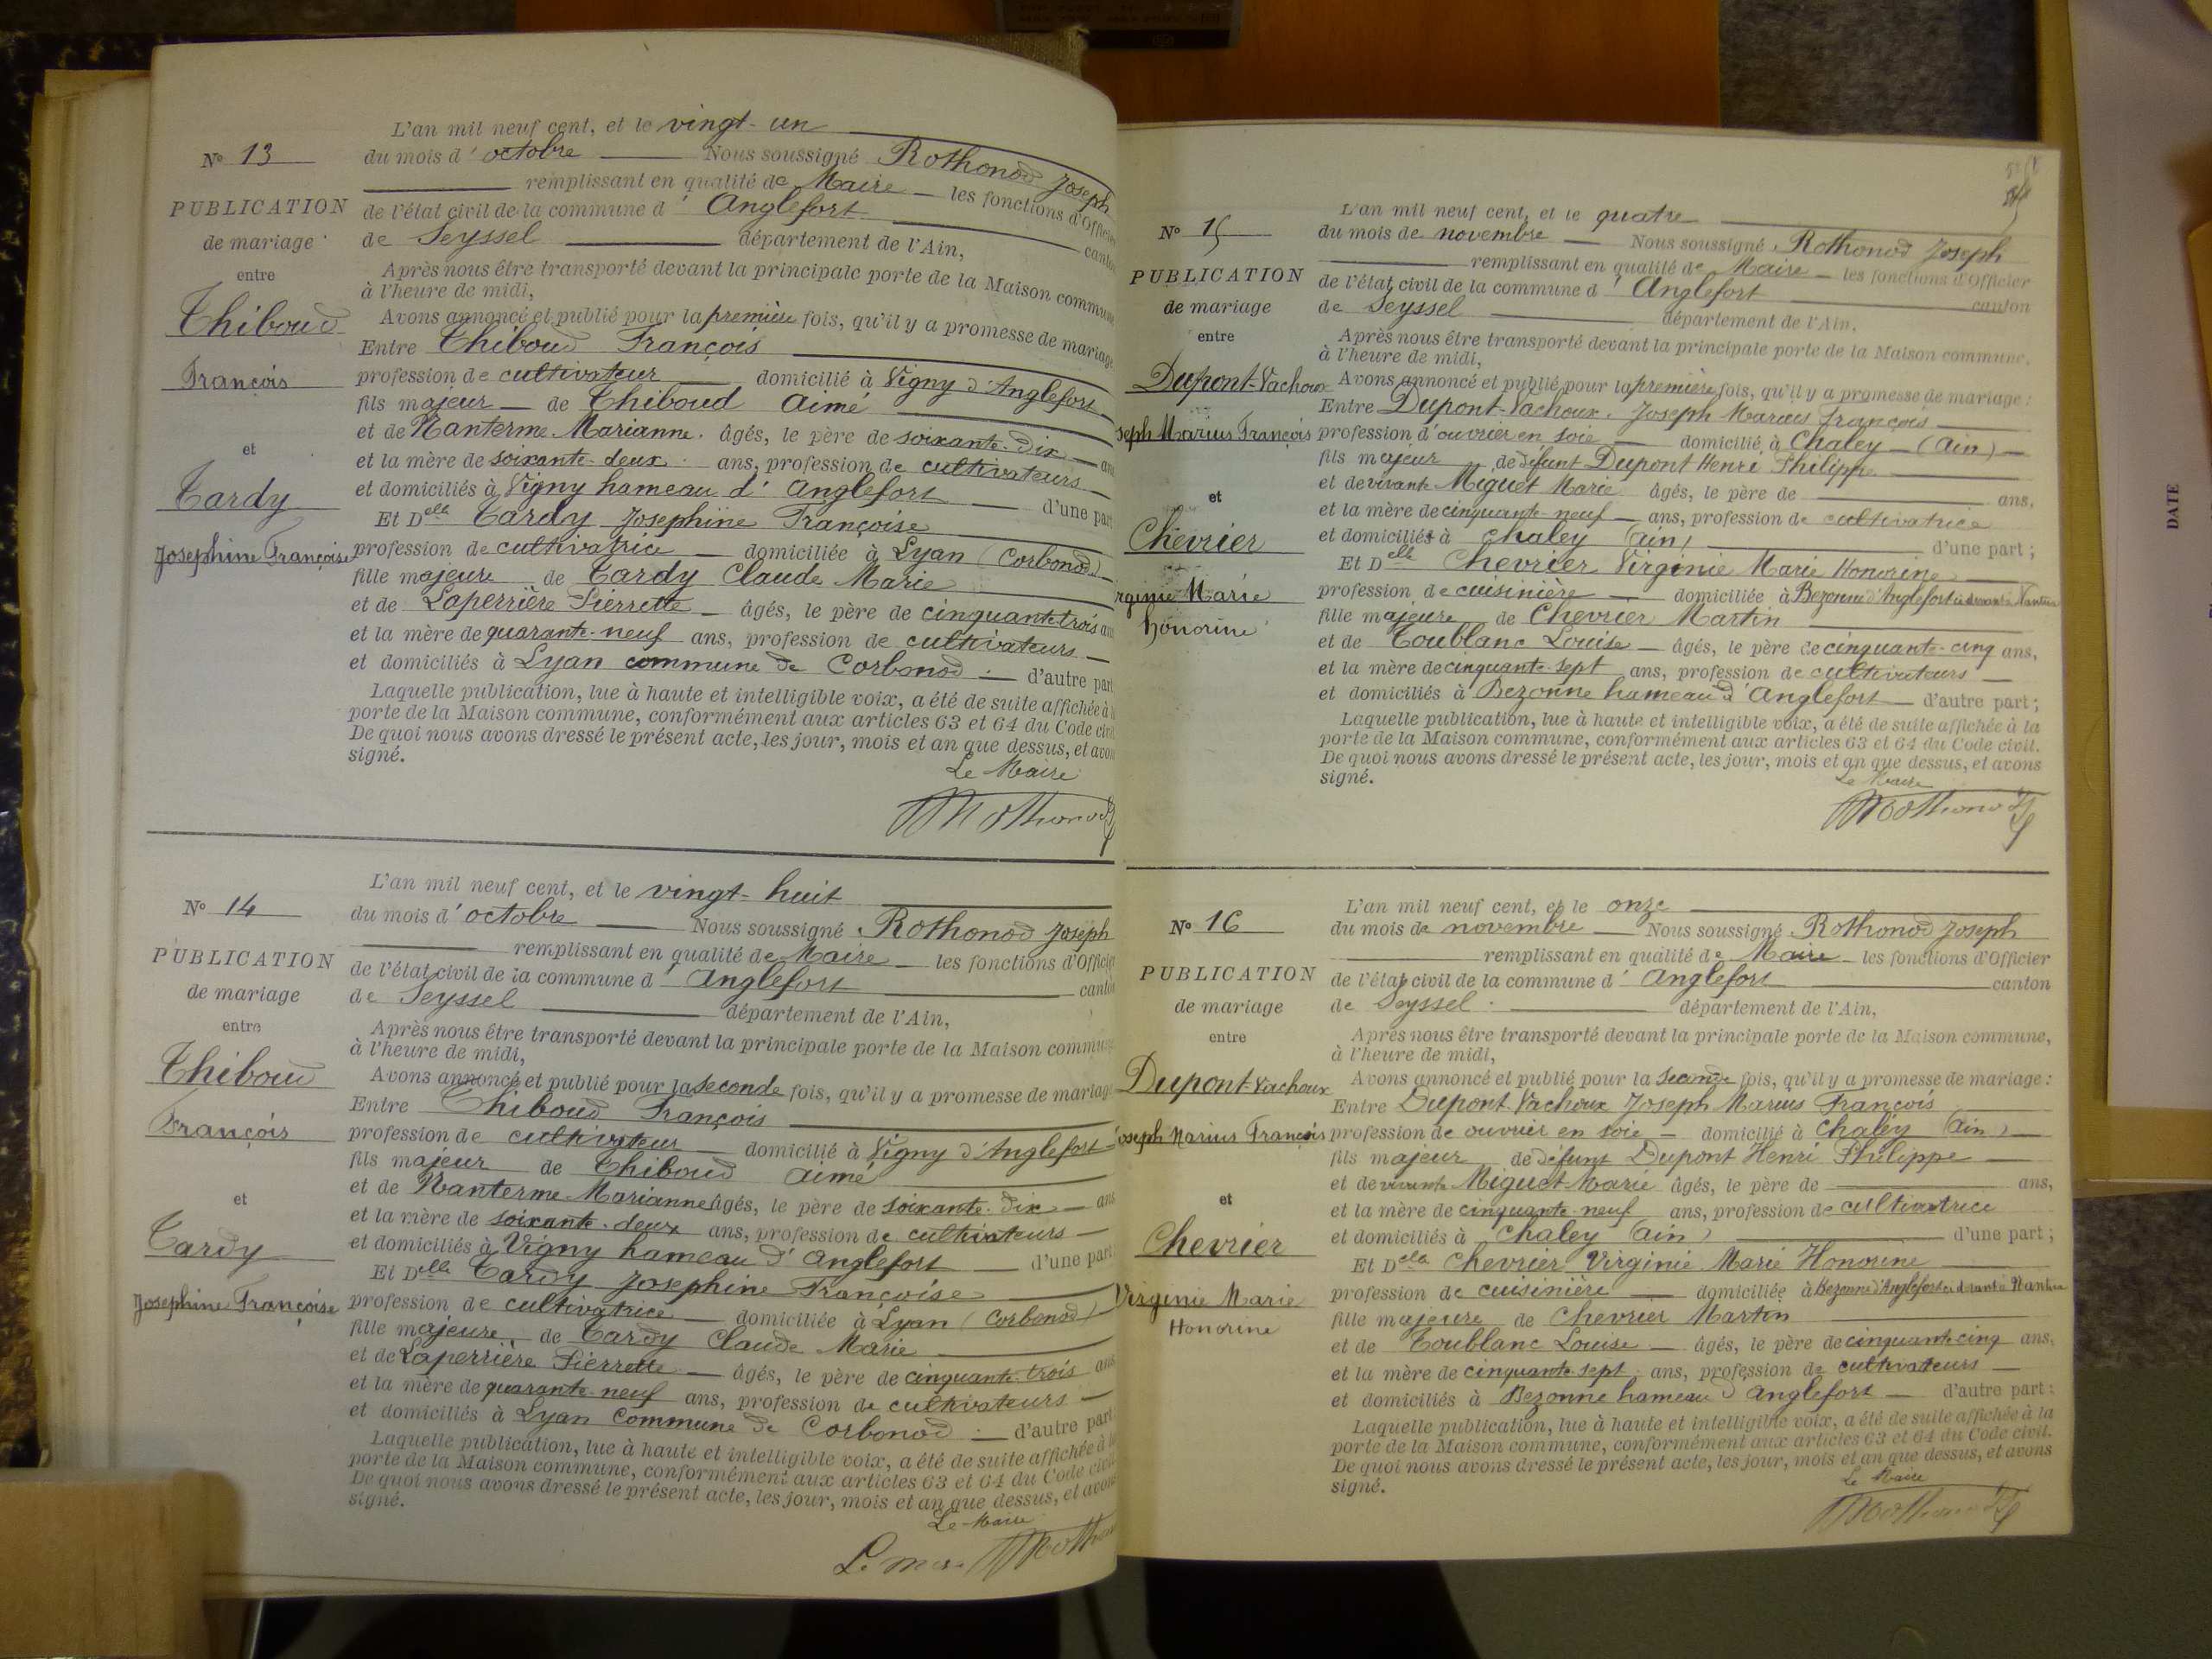 L'an mil neuf cent, et le vingt-un
N° 13
du mois d'octobre Nous soussigné Rothonod Joseph
remplissant en qualité de Maire les fonctions d'Officier
PUBLICATION
de l'état civil de la commune d'Anglefort canton
de mariage
de Seyssel département de l'Ain,
entre
Après nous être transporté devant la principale porte de la Maison commune
à l'heure de midi,
Thiboud
Avons annoncé et publié pour la première fois, qu'il y a promesse de mariage
Entre Thiboud François
François
profession de cultivateur domicilié à Vigny d'Anglefort
fils majeur de Thiboud Aimé
et de Nanterme Marianne. âgés, le père de soixante-dix ans
et
et la mère de soixante-deux ans, profession de cultivateurs
Tardy
et domiciliés à Vigny hameau d'Anglefort d'une part
Et Delle Tardy Josephine Françoise
Josephine Françoise
profession de cultivatrice domiciliée à Lyan (Corbonod)
fille majeure de Tardy Claude Marie
et de Laperrière Pierrette âgés, le père de cinquante trois ans
et la mère de quarante-neuf ans, profession de cultivateurs
et domiciliés à Lyan commune de Corbonod d'autre part
Laquelle publication, lue à haute et intelligible voix, a été de suite affichée à la
porte de la Maison commune, conformément aux articles 63 et 64 du Code civil
De quoi nous avons dressé le présent acte, les jour, mois et an que dessus, et avons
signé.
Le Maire
Rothonod
L'an mil neuf cent, et le vingt-huit
N° 14
du mois d'octobre Nous soussigné Rothonod Joseph
remplissant en qualité de Maire les fonctions d'Officier
PUBLICATION
de l'état civil de la commune d'Anglefort canton
de mariage
de Seyssel département de l'Ain,
entre
Après nous être transporté devant la principale porte de la Maison commune
à l'heure de midi,
Thiboud
Avons annoncé et publié pour la seconde fois, qu'il y a promesse de mariage
Entre Thiboud François
François
profession de cultivateur domicilié à Vigny d'Anglefort
fils majeur de Thiboud aimé
et de Nanterme Marianne âgés, le père de soixante-dix ans
et
et la mère de soixante-deux ans, profession de cultivateurs
Tardy
et domiciliés à Vigny hameau d'Anglefort d'une part
Et Delle Tardy Josephine Françoise
Josephine Françoise
profession de cultivatrice domiciliée à Lyan (Corbonod)
fille majeure de Tardy Claude Marie
et de Laperrière Pierrette âgés, le père de cinquante-trois ans
et la mère de quarante-neuf ans, profession de cultivateurs
et domiciliés à Lyan Commune de Corbonod d'autre part
Laquelle publication, lue à haute et intelligible voix, a été de suite affichée à la
porte de la Maison commune, conformément aux articles 63 et 64 du Code civil
De quoi nous avons dressé le présent acte, les jour, mois et an que dessus, et avons
signé.
Le Maire
Le maire
L'an mil neuf cent, et le quatre
N° 15
du mois de novembre Nous soussigné Rothonod Joseph
remplissant en qualité de Maire les fonctions d'Officier
PUBLICATION
de l'état civil de la commune d'Anglefort canton
de mariage
de Seyssel département de l'Ain,
entre
Après nous être transporté devant la principale porte de la Maison commune,
à l'heure de midi,
Dupont-Vachoux
Avons annoncé et publié pour la première fois, qu'il y a promesse de mariage :
Entre Dupont-Vachoux Joseph Marius François
seph Marius François
profession d'ouvrier en soie domicilié à Chaley (Ain)
fils majeur de défunt Dupont Henri Philippe
et de vivante Miguet Marie âgés, le père de ans,
et
et la mère de cinquante-neuf ans, profession de cultivatrice
Chevrier
et domiciliés à Chaley (ain) d'une part ;
Et Delle Chevrier Virginie Marie Honorine
rginie Marie
profession de cuisinière domiciliée à Bezonne d'Anglefort ci devant à Nantua
honorine
fille majeure de Chevrier Martin
et de Toublanc Louise âgés, le père de cinquante-cinq ans,
et la mère de cinquante-sept ans, profession de cultivateurs
et domiciliés à Bezonne hameau d'Anglefort d'autre part ;
Laquelle publication, lue à haute et intelligible voix, a été de suite affichée à la
porte de la Maison commune, conformément aux articles 63 et 64 du Code civil.
De quoi nous avons dressé le présent acte, les jour, mois et an que dessus, et avons
signé.
Le Maire
Rothonod
L'an mil neuf cent, et le onze
N° 16
du mois de novembre Nous soussigné Rothonod Joseph
remplissant en qualité de Maire les fonctions d'Officier
PUBLICATION
de l'état civil de la commune d'Anglefort canton
de mariage
de Seyssel département de l'Ain,
entre
Après nous être transporté devant la principale porte de la Maison commune,
à l'heure de midi,
Dupont-Vachoux
Avons annoncé et publié pour la seconde fois, qu'il y a promesse de mariage :
Entre Dupont-Vachoux Joseph Marius François
oseph Marius François
profession de ouvrier en soie domicilié à Chaley (Ain)
fils majeur de défunt Dupont Henri Philippe
et de vivante Miguet Marie âgés, le père de ans,
et
et la mère de cinquante-neuf ans, profession de cultivatrice
Chevrier
et domiciliés à Chaley (ain) d'une part ;
Et Delle Chevrier Virginie Marie Honorine
Virginie Marie
profession de cuisinière domiciliée à Bezonne d'Anglefort ci devant à Nantua
Honorine
fille majeure de Chevrier Martin
et de Toublanc Louise âgés, le père de cinquante cinq ans,
et la mère de cinquante-sept ans, profession de cultivateurs
et domiciliés à Bezonne hameau d'Anglefort d'autre part ;
Laquelle publication, lue à haute et intelligible voix, a été de suite affichée à la
porte de la Maison commune, conformément aux articles 63 et 64 du Code civil.
De quoi nous avons dressé le présent acte, les jour, mois et an que dessus, et avons
signé.
Le Maire
Rothonod
DATE